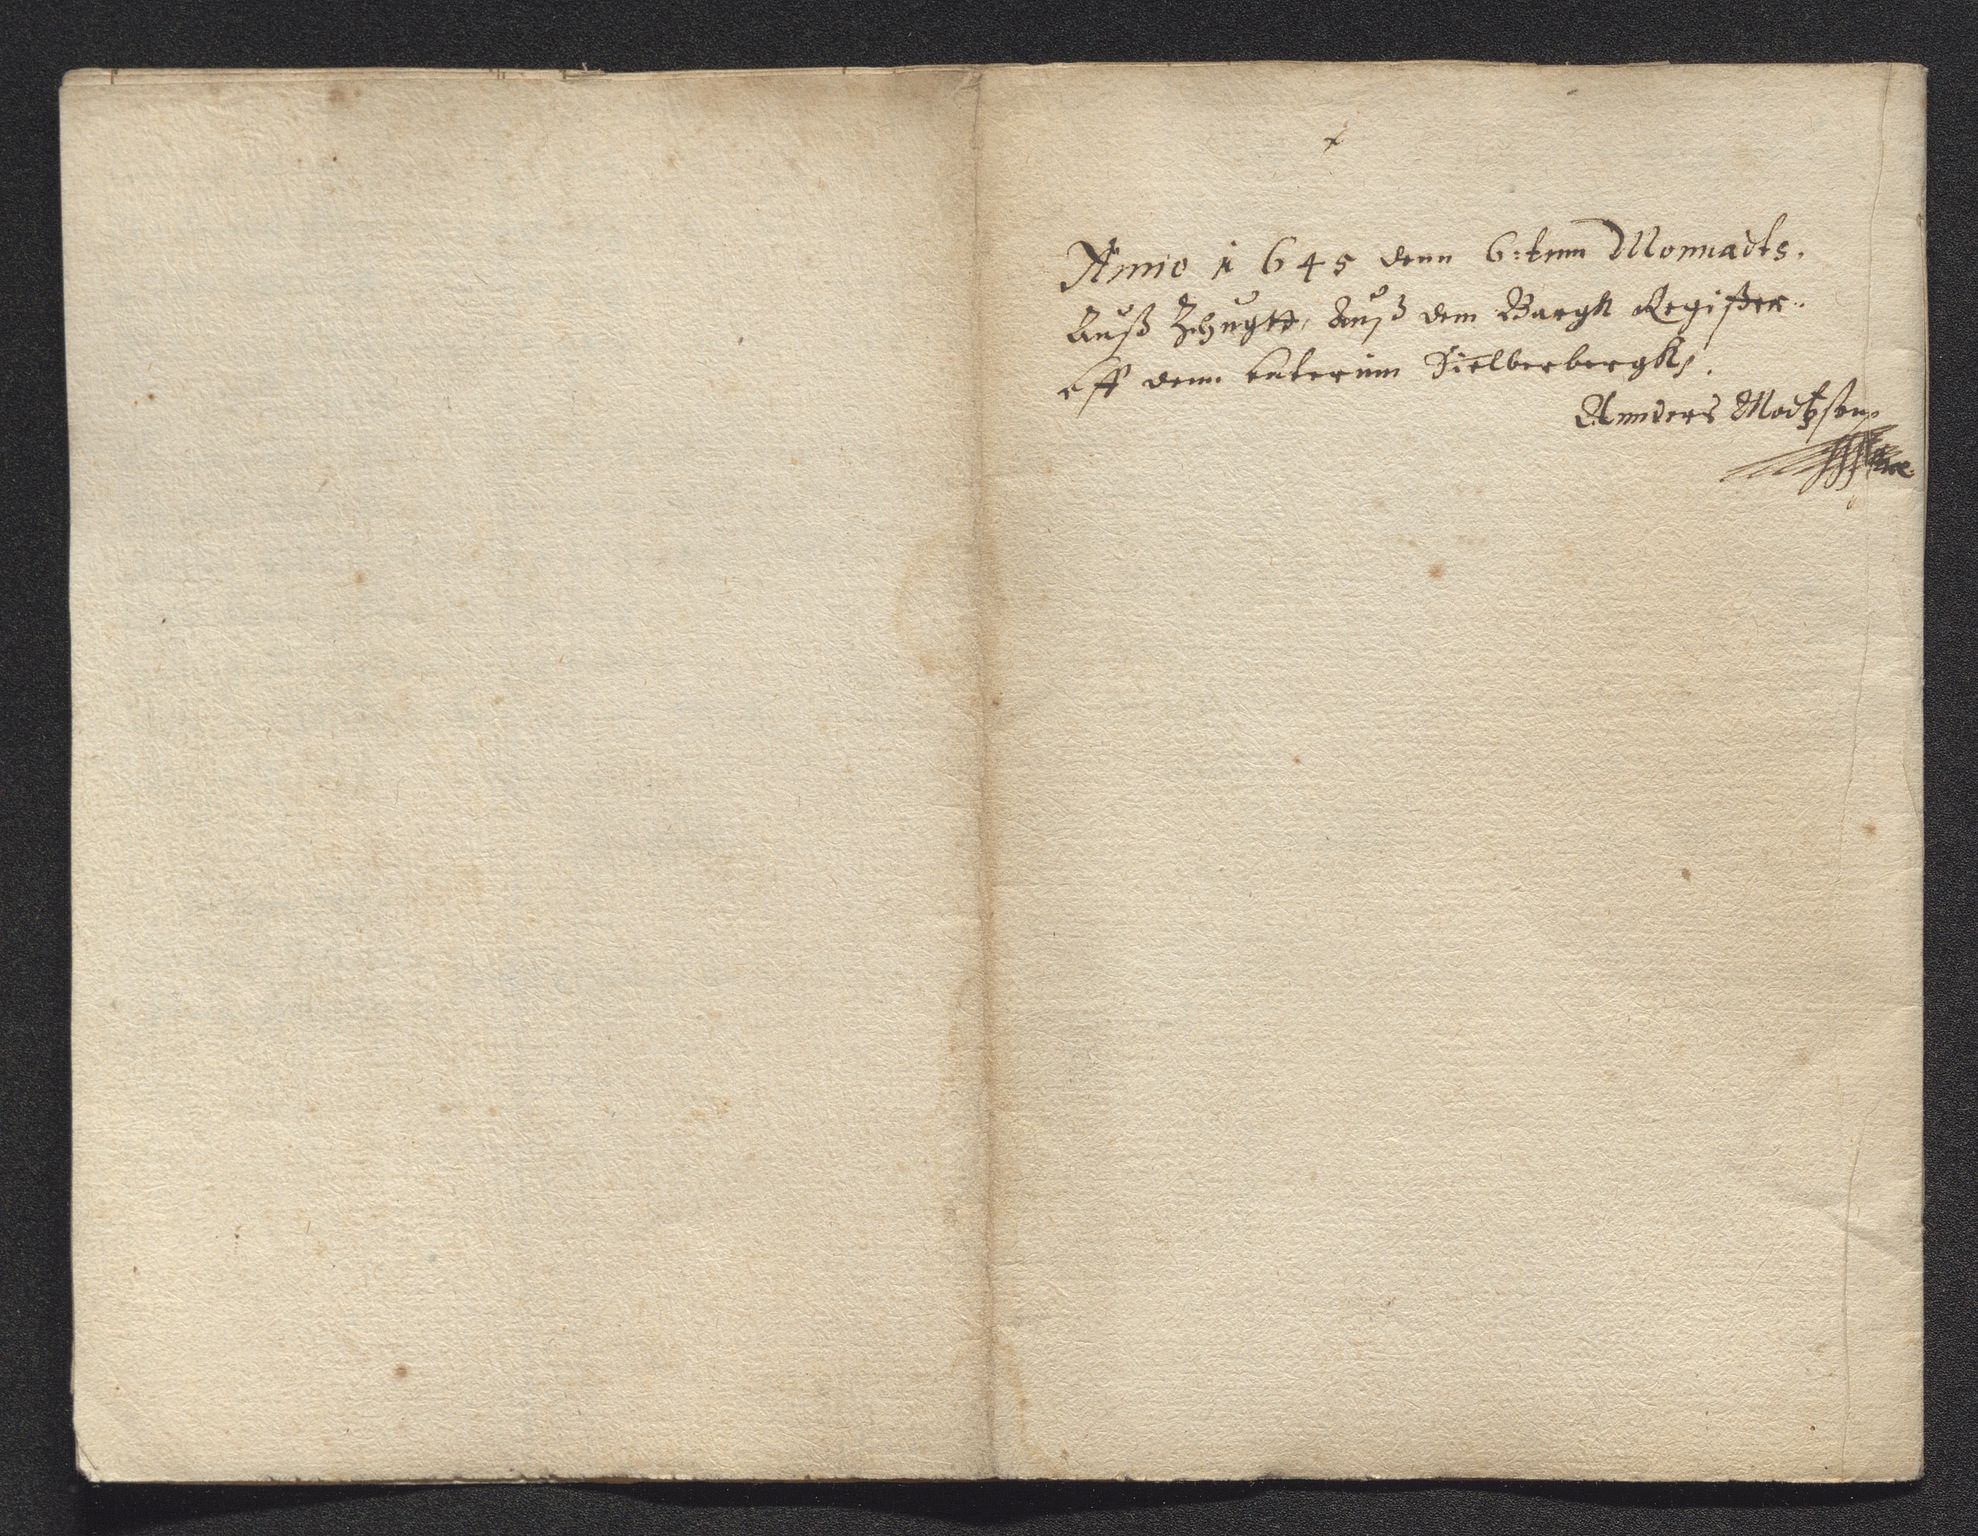 Anno 1645 denn 6:tenn Monnadts.
Auß Zhugkt, Auß dem Bargk Register.
Off denn Sielberbergk,
Annders Madtzsen